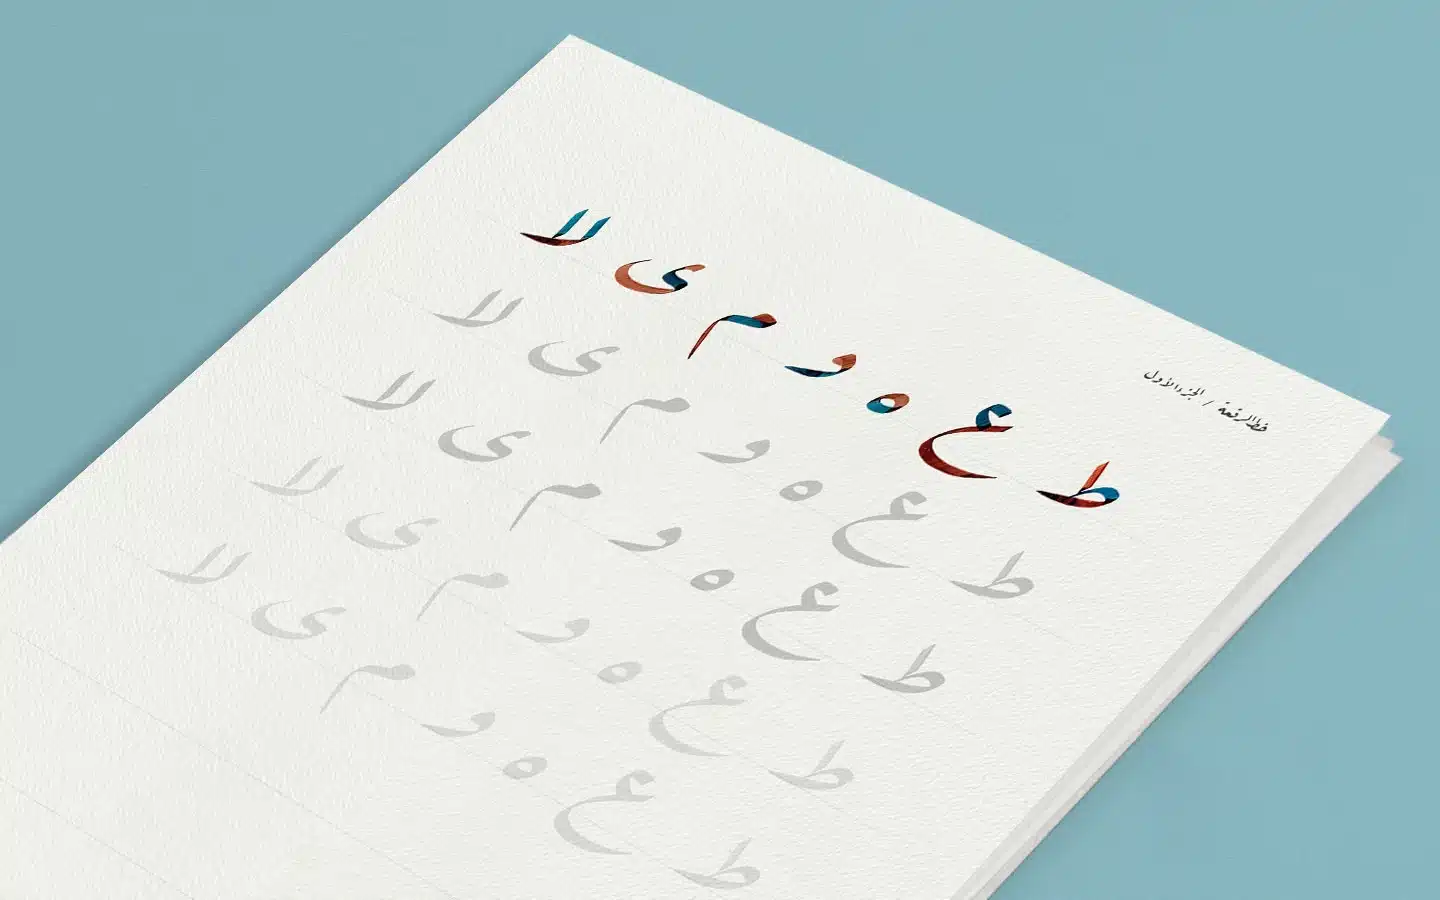 خط الرقعة / الجزء الأول
ط ع ه و م ى لا
ط ع ه و م ى لا
ط ع ه و م ى لا
ط ع ه و م ى لا
ط ع ه و م ى لا